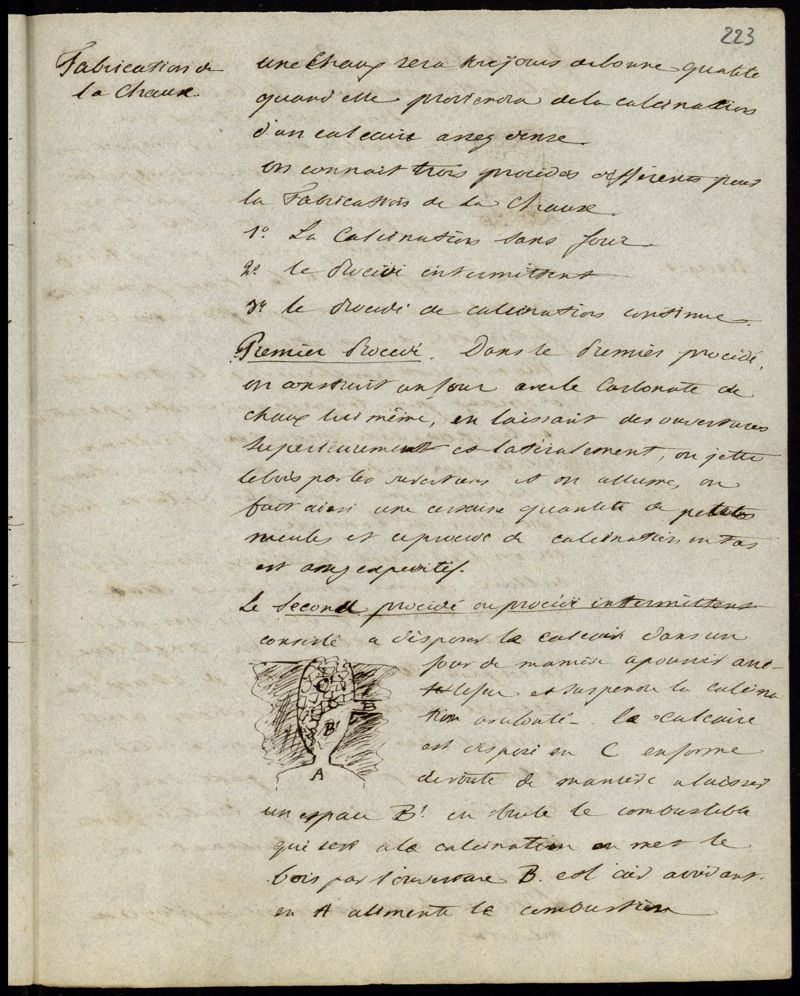 223
Fabrication de
la Chaux.
une Chaux sera toujours de bonne qualité
quand elle proviendra de la calcination
d'un calcaire assez dense
on connait trois procédés différents pour
la Fabrication de la Chaux.
1º La Calcination sans four
2º le Procédé intermittent
3º le Procédé de calcination continue.
Premier Procédé. Dans le Premier procédé,
on construit un four avec le Carbonate de
chaux lui même, en laissant des ouvertures
supérieurement et latéralement, on jette
le bois par les ouvertures et on allume, on
fait ainsi une certaine quantité de petites
meules et ce procédé de calcination en tas
est assez expéditif.
Le second procédé ou procédé intermittent
consiste a disposer le calcaire dans un
four de manière a pouvoir
le feu et suspendre la calcina
tion a volonté. le calcaire
est disposé en C en forme
de voute de manière a laisser
un espace B' ou brule le combustible
qui sert a la calcination on met le
bois par l'ouverture B. est
en A alimente la combustion
C
B
B'
A